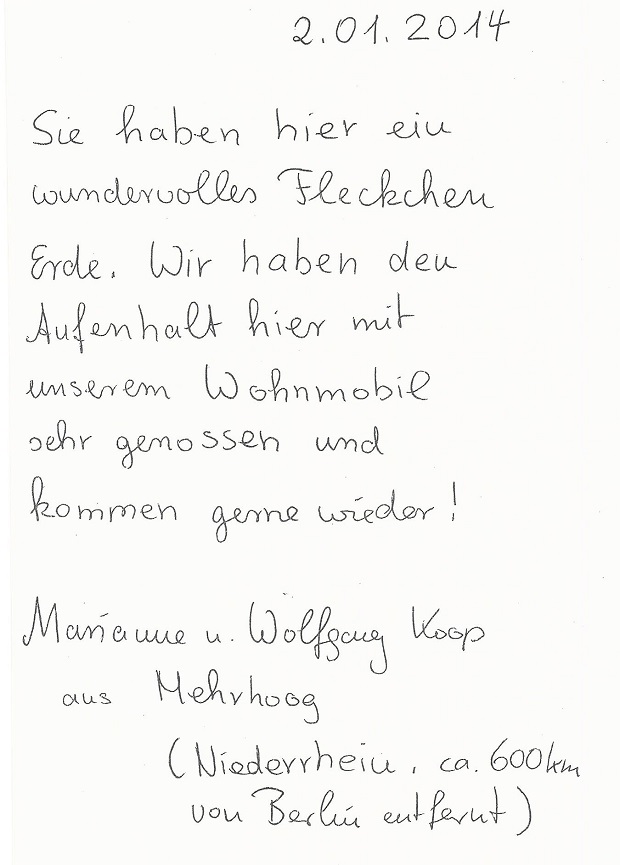 2.01.2014
Sie haben hier ein
wundervolles Fleckchen
Erde. Wir haben den
Aufenhalt hier mit
unserem Wohnmobil
sehr genossen und
kommen gerne wieder!
Marianne u. Wolfgang Koop
aus Mehrhoog
(Niederrhein, ca. 600 km
von Berlin entfernt)